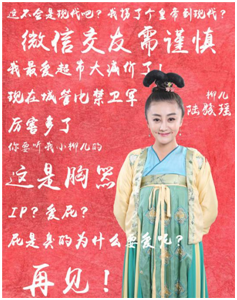 这不会是现代吧？我拐了个皇帝到现代？
微信交友需谨慎
我最爱超市大减价了！
现在城管比禁卫军
厉害多了
你要听我小柳儿的
这是胸器
IP？爱屁？
屁是臭的为什么要爱呢？
再见！
柳儿